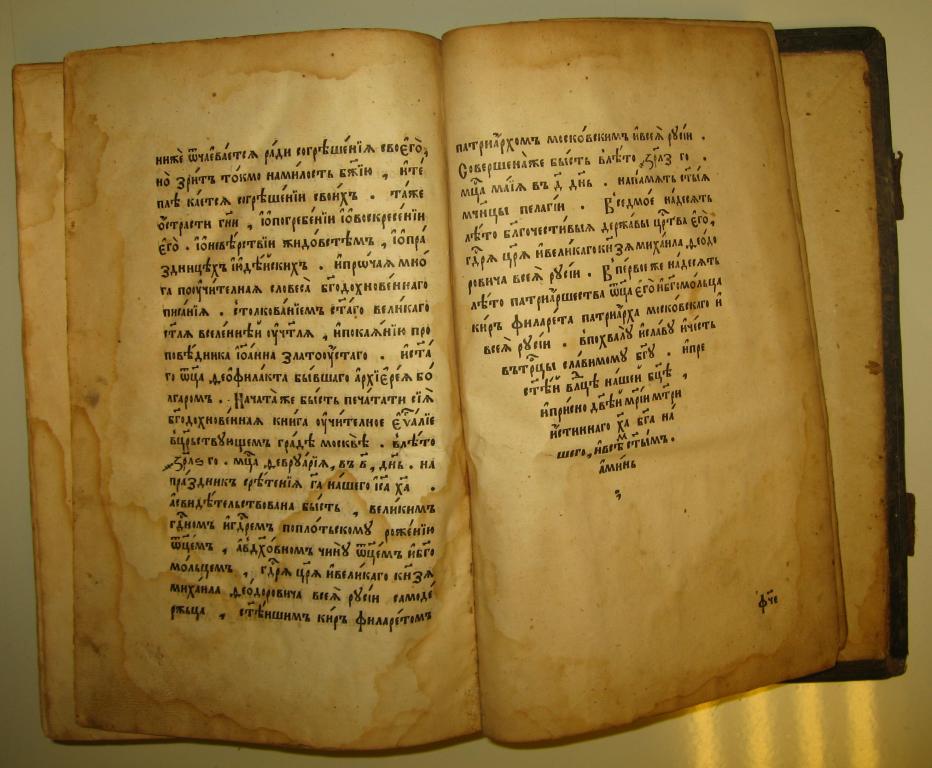 ниже ѿчаева́ется ра́ди согрѣше́нїѧ своегѡ̀,
но̀ зри́тъ то́кмо нами́лость бж҃їю , и҆те́
плѣ ка́ется согрѣше́нїи свои́хъ . та́же
ѻ҆стра́сти гн҃и , і҆ѻпогребе́нїи і҆ѻвоскресе́нїи
є҆го̀ . і҆ѻневѣ́рствїи жидо́встѣмъ , і҆ѻпра́
здницѣхъ і҆ꙋде́йскихъ . и҆прѡ́чаѧ мно́
га поꙋчи́телнаѧ словеса̀ бг҃одꙋхнове́ннаго
писа́нїѧ . столкова́нїемъ ст҃а́го вели́каго
ст҃лѧ вселе́ннѣй ꙋ҆чт҃лѧ , и҆покаѧ́нїю про
повѣ́дника і҆ѡа́нна златоꙋ́стаго . и҆ст҃а́
го ѻ҆ц҃а̀ ѳеѻфила́кта бы́вшаго а҆рхїере́ѧ бо́
лгаромъ . Нача́та же бы́сть печа́тати сїѧ̀
бг҃одꙋхнове́ннаѧ кни́га ꙋ҆чи́тельное є҆ѵⷢ҇а́лїе
вца́рьствꙋющемъ гра́дѣ москвѣ̀ . влѣ́то
҂зр҃ла го . мц҃а ѳеврꙋа́рїѧ , въ в҃ , дн҃ь . на
пра́здникъ срѣ́тенїѧ гд҃а на́шего і҆с҃а хр҃та̀ .
а҆свидѣ́тельствована бы́сть , вели́кимъ
гдⷭ҇номъ и҆гдⷭ҇ремъ попло́тьскомꙋ роже́нїю
ѻ҆ц҃е́мъ , авдх҃о́вномъ чи́нꙋ ѻ҆ц҃е́мъ и҆бг҃о
мо́льцемъ , гдⷭ҇рѧ цр҃ѧ̀ и҆вели́каго кн҃зѧ
михаи́ла ѳео́доровича всеѧ̀ рꙋсі́и самоде́
ржьца , ст҃ѣ́ишимъ ки́ръ филаре́томъ
патрїа́рхомъ моско́вскимъ и҆всеѧ̀ рꙋсі́и .
Соверше́на же бы́сть влѣ́то ҂зр҃лз го .
мц҃а ма́їѧ въ д҃ дн҃ь . напа́мѧть ст҃ы́ѧ
мч҃ницы пелагі́и . Вседмо́е на́десѧть
лѣ́то бл҃гочести́выѧ держа́вы цр҃тва є҆го̀,
гдⷭ҇рѧ цр҃ѧ̀ и҆вели́каго кн҃зѧ миха́ила ѳео́до
ровича всеѧ̀ рꙋсі́и . Впе́рвое же на́десѧть
лѣ́то патрїа́ршества ѻ҆ц҃а̀ є҆го̀ и҆бг҃омо́льца
ки́ръ филаре́та патрїа́рха моско́вскаго и҆
всеѧ̀ рꙋсі́и . впохвалꙋ̀ и҆сла́вꙋ и҆че́сть
вътрⷪ҇цы сла́вимомꙋ бг҃ꙋ . и҆пре
ст҃ѣ́й влⷣцѣ на́шей бц҃ѣ ,
и҆при́сно дв҃ѣ и҆мр҃їи мт҃ри
и҆́стиннаго хр҃та̀ бг҃а на́
шего, и҆всѣ́мъ ст҃ы́мъ .
а҆ми́нь
фч҃е